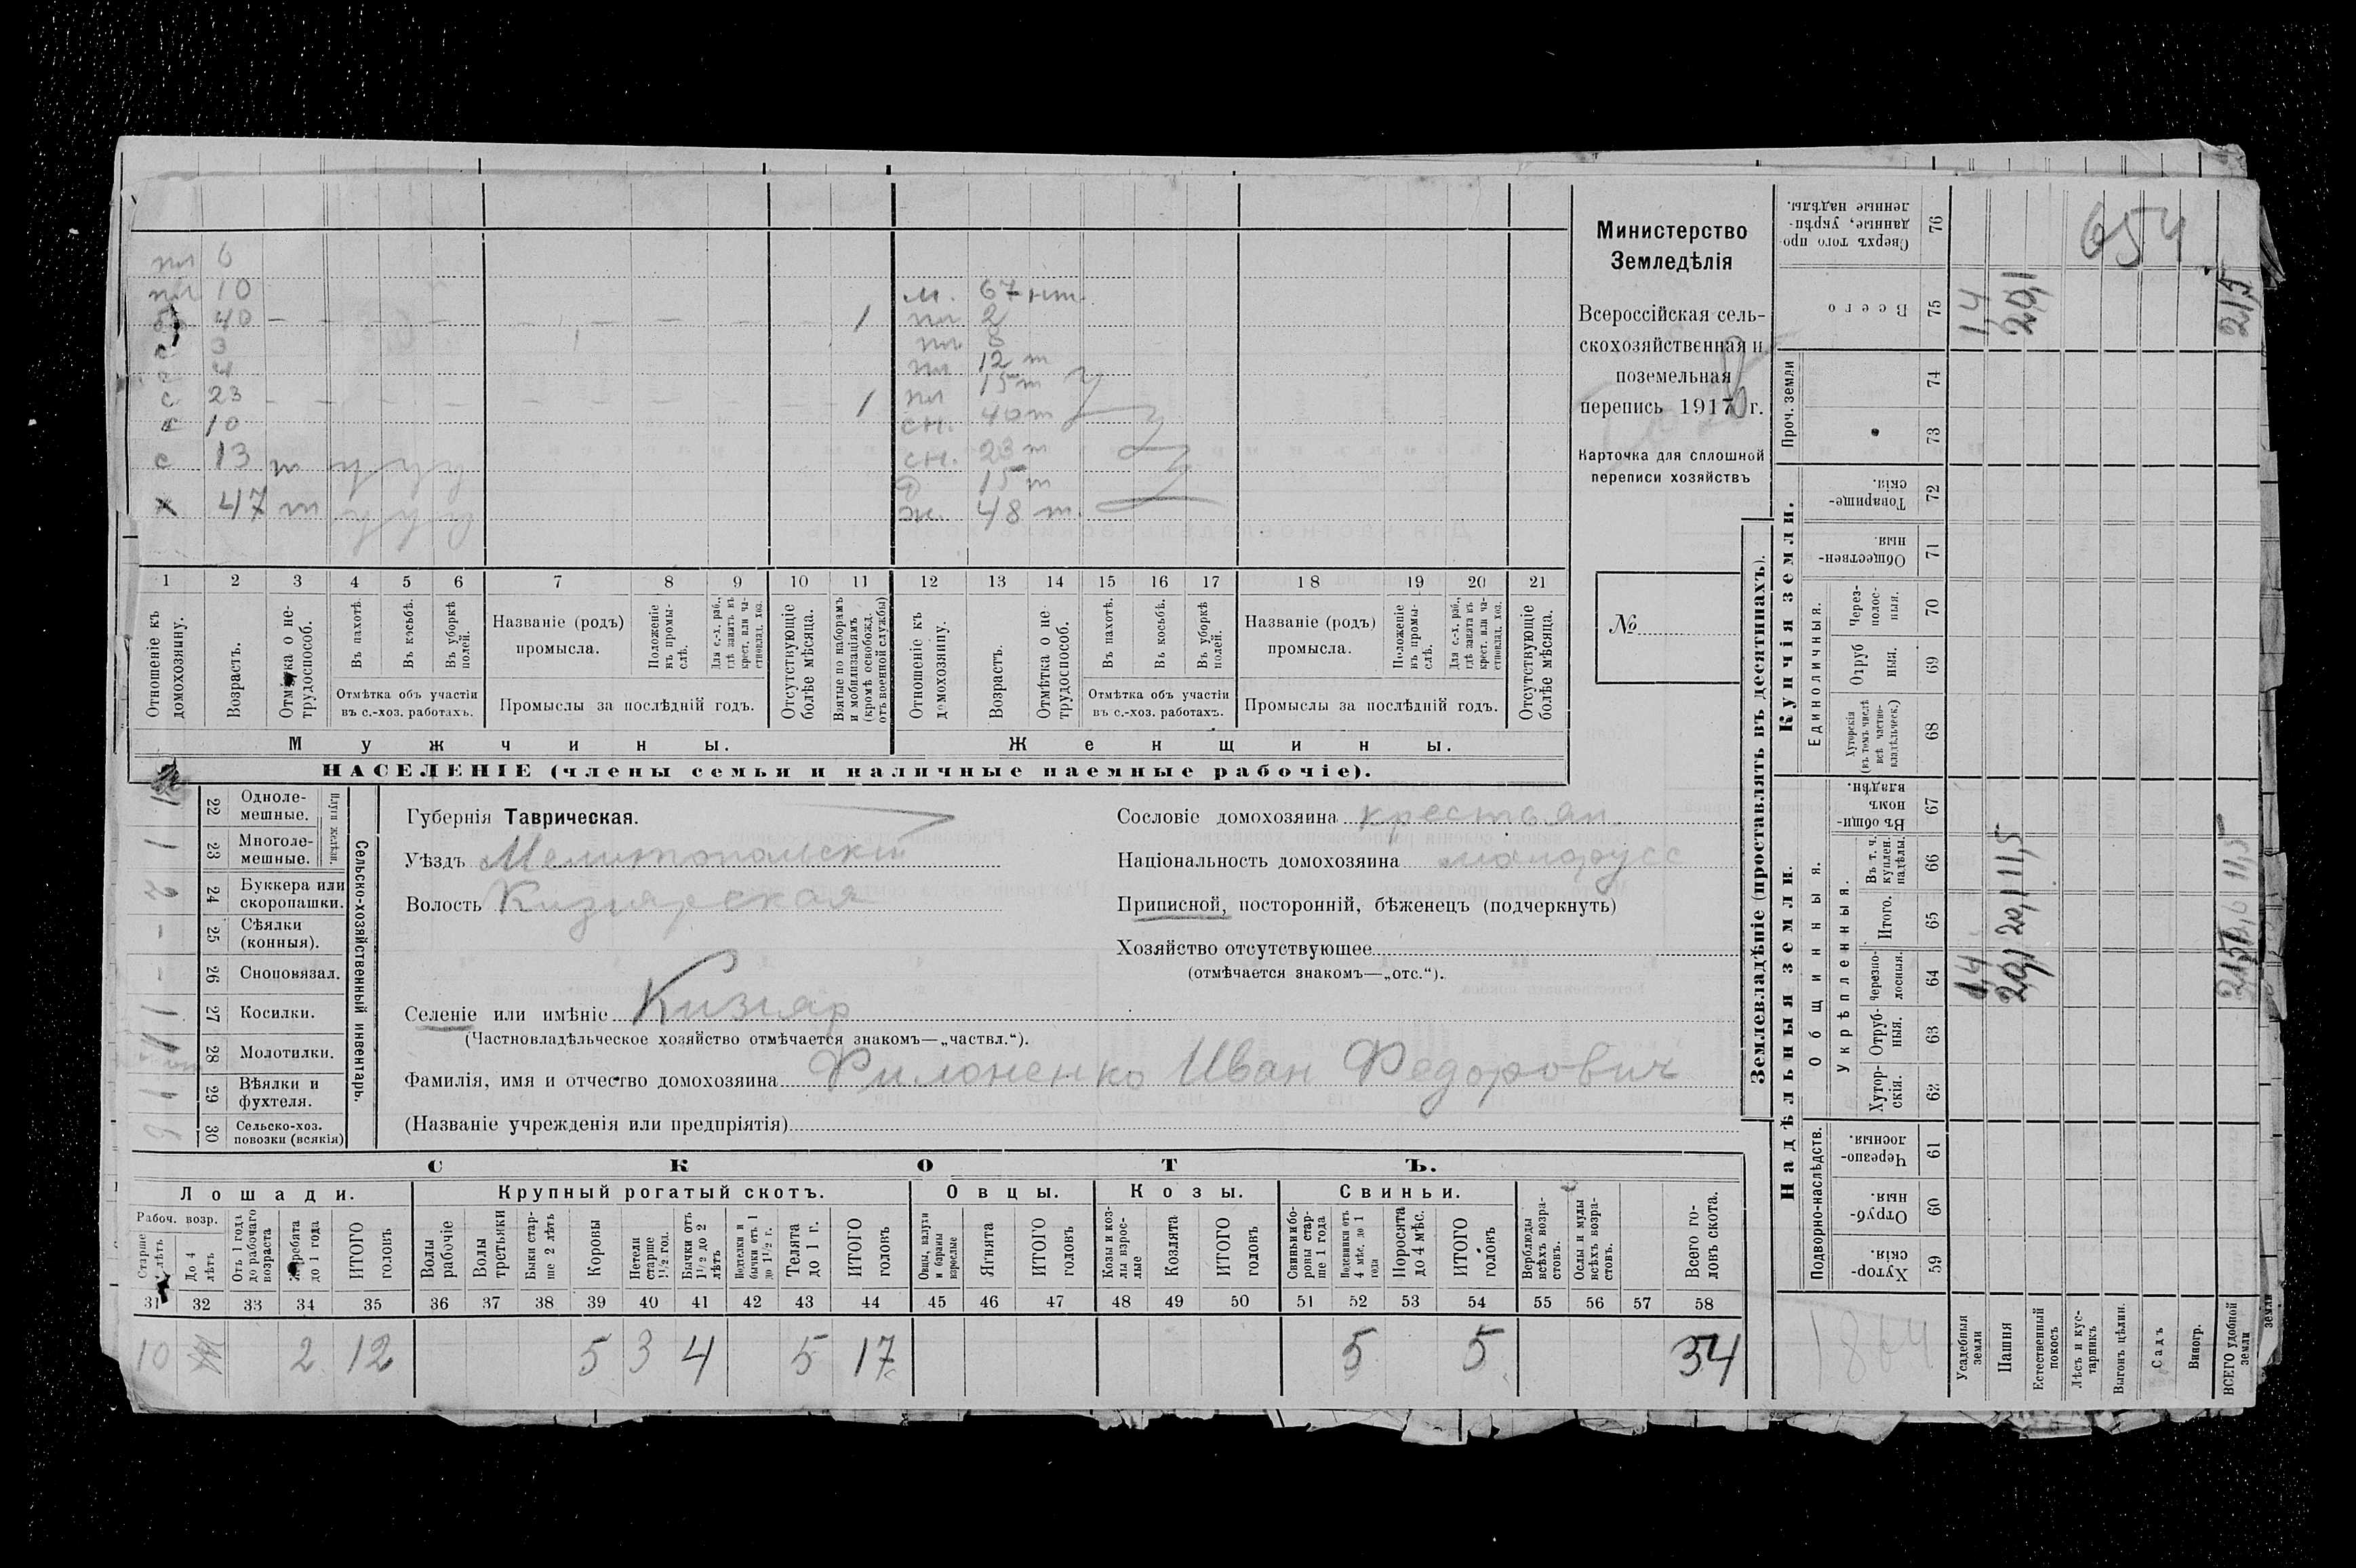 пл 6
пл 10
б 40 — — — — — — — — — 1
с 3
с 4
с 23 — — — — — — — — — 1
с 10
с 13 т у у у
х 47 т у у у
м. 67 нт.
пл 2
пл 6
пл 12 т
пл 15 т у
сн. 40 т
сн. 23 т
д 15 т
ж. 48 т.
1 2 3 4 5 6 7 8 9 10 11 12 13 14 15 16 17 18 19 20 21
Отношеніе къ домохозяину.
Возрастъ.
Отмѣтка о нетрудоспособ.
Въ пахотѣ.
Въ косьбѣ.
Въ уборкѣ полей.
Отмѣтка объ участіи
въ с.-хоз. работахъ.
Названіе (родъ)
промысла.
Положеніе въ промыслѣ.
Для с.-х. раб., гдѣ занятъ въ крест. или частновлад. хоз.
Промыслы за послѣдній годъ.
Отсутствующіе болѣе мѣсяца.
Взятые по наборамъ и мобилизаціямъ (кромѣ освобожд. отъ военной службы)
Отношеніе къ домохозяину.
Возрастъ.
Отмѣтка о нетрудоспособ.
Въ пахотѣ.
Въ косьбѣ.
Въ уборкѣ полей.
Отмѣтка объ участіи
въ с.-хоз. работахъ.
Названіе (родъ)
промысла.
Положеніе въ промыслѣ.
Для с.-х. раб., гдѣ занята въ крест. или частновлад. хоз.
Промыслы за послѣдній годъ.
Отсутствующіе болѣе мѣсяца.
Мужчины.
Женщины.
НАСЕЛЕНІЕ (члены семьи и наличные наемные рабочіе).
Министерство
Земледѣлія
Всероссійская сель-
скохозяйственная и
поземельная
перепись 1917 г.
Карточка для сплошной
переписи хозяйствъ
№
22 Одноле-
мешные.
23 Многоле-
мешные.
Плуги желѣзн.
24 Буккера или
скоропашки.
25 Сѣялки
(конныя).
26 Сноповязал.
27 Косилки.
28 Молотилки.
29 Вѣялки и
фухтеля.
30 Сельско-хоз.
повозки (всякія)
Сельско-хозяйственный инвентарь.
Губернія Таврическая.
Уѣздъ Мелитопольскій
Волость Кизиярская
Селеніе или имѣніе Кизияр
(Частновладѣльческое хозяйство отмѣчается знакомъ—„частвл.“).
Фамилія, имя и отчество домохозяина Филоненко Иван Федорович
(Названіе учрежденія или предпріятія)
Сословіе домохозяина крестьян.
Національность домохозяина малорусс
Приписной, посторонній, бѣженецъ (подчеркнуть)
Хозяйство отсутствующее
(отмѣчается знакомъ—„отс.“).
СКОТЪ.
Лошади.
Крупный рогатый скотъ.
Овцы.
Козы.
Свиньи.
Рабоч. возр.
Старше лѣтъ
До 4 лѣтъ
Отъ 1 года до рабочаго возраста
Жеребята до 1 года
ИТОГО головъ
Волы рабочіе
Волы третьяки
Быки старше 2 лѣтъ
Коровы
Нетели старше 1½ год.
Бычки отъ 1½ до 2 лѣтъ
Подтелки и бычки отъ 1 до 1½ г.
Телята до 1 г.
ИТОГО головъ
Овцы, валухи и бараны взрослые
Ягнята
ИТОГО головъ
Козы и козлы взрослые
Козлята
ИТОГО головъ
Свиньи и боровы старше 1 года
Подсвинки отъ 4 мѣс. до 1 года
Поросята до 4 мѣс.
ИТОГО головъ
Верблюды всѣхъ возрастовъ.
Ослы и мулы всѣхъ возрастовъ.
Всего головъ скота.
31 32 33 34 35 36 37 38 39 40 41 42 43 44 45 46 47 48 49 50 51 52 53 54 55 56 57 58
10 2 12 5 3 4 5 17 5 5 34
Землевладѣніе (проставлять въ десятинахъ).
Надѣльныя земли.
Купчія земли.
Проч. земли
Подворно-наслѣдств.
Общинныя.
Укрѣпленныя.
Единоличныя.
Хуторскія. 59
Отрубныя. 60
Черезполосныя. 61
Хуторскія. 62
Отрубныя. 63
Черезполосныя. 64
Итого. 65
Въ т. ч. куплен. надѣлы. 66
Въ общинномъ владѣн. 67
Хуторскія (въ томъ числѣ всѣ частновладѣльческ.) 68
Отрубныя. 69
Черезполосныя. 70
Общественныя. 71
Товарищескія. 72
73
74
Всего 75
Сверхъ того проданные, укрѣпленные надѣлы. 76
Усадебныя земли 1,4 1,4
Пашня 20,1 20,1 11,5 20,1
Естественный покосъ
Лѣсъ и кустарникъ
Выгонъ цѣлин.
Садъ
Виногр.
ВСЕГО удобной земли 21,5 11,5 21,5
земли
654
1864